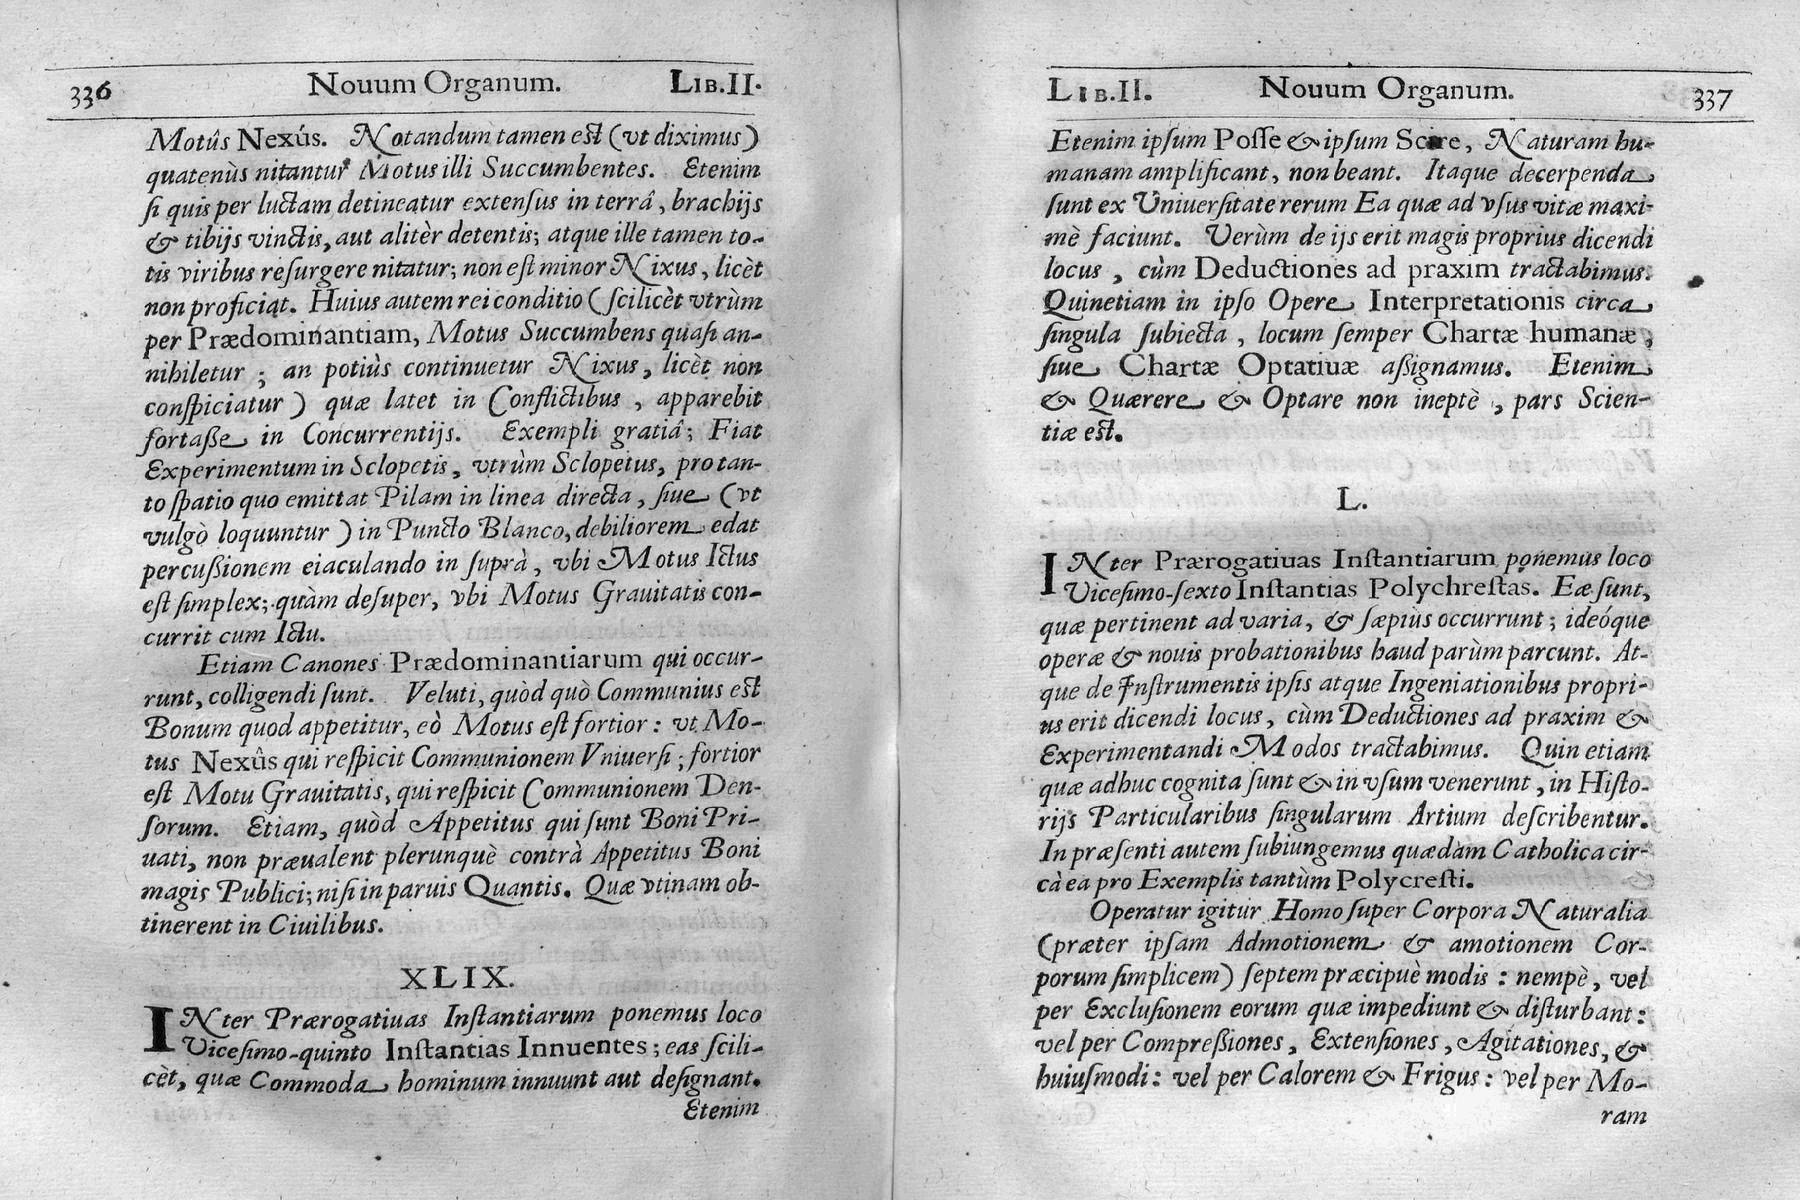 336 Nouum Organum. LIB.II.
Motûs Nexús. Notandum tamen est (vt diximus)
quatenùs nitantur Motus illi Succumbentes. Etenim
si quis per luctam detineatur extensus in terrâ, brachijs
& tibijs vinctis, aut alitèr detentis; atque ille tamen to-
tis viribus resurgere nitatur; non est minor Nixus, licèt
non proficiat. Huius autem rei conditio (scilicèt vtrùm
per Prædominantiam, Motus Succumbens quasi an-
nihiletur; an potiùs continuetur Nixus, licèt non
conspiciatur) quæ latet in Conflictibus, apparebit
fortaße in Concurrentijs. Exempli gratiâ; Fiat
Experimentum in Sclopetis, vtrùm Sclopetus, pro tan-
to spatio quo emittat Pilam in linea directa, siue (vt
vulgò loquuntur) in Puncto Blanco, debiliorem edat
percußionem eiaculando in suprà, vbi Motus Ictus
est simplex; quàm desuper, vbi Motus Grauitatis con-
currit cum Ictu.
Etiam Canones Prædominantiarum qui occur-
runt, colligendi sunt. Veluti, quòd quò Communius est
Bonum quod appetitur, eò Motus est fortior: vt Mo-
tus Nexûs qui respicit Communionem Vniuersi; fortior
est Motu Grauitatis, qui respicit Communionem Den-
sorum. Etiam, quòd Appetitus qui sunt Boni Pri-
uati, non præualent plerunquè contrà Appetitus Boni
magis Publici; nisi in paruis Quantis. Quæ vtinam ob-
tinerent in Ciuilibus.
XLIX.
INter Prærogatiuas Instantiarum ponemus loco
Vicesimo-quinto Instantias Innuentes; eas scili-
cèt, quæ Commoda hominum innuunt aut designant.
Etenim
LIB.II. Nouum Organum. 337
Etenim ipsum Posse & ipsum Scire, Naturam hu-
manam amplificant, non beant. Itaque decerpenda
sunt ex Vniuersitate rerum Ea quæ ad vsus vitæ maxi-
mè faciunt. Verùm de ijs erit magis proprius dicendi
locus, cùm Deductiones ad praxim tractabimus.
Quinetiam in ipso Opere Interpretationis circa
singula subiecta, locum semper Chartæ humanæ,
siue Chartæ Optatiuæ aßignamus. Etenim
& Quærere & Optare non ineptè, pars Scien-
tiæ est.
L.
INter Prærogatiuas Instantiarum ponemus loco
Vicesimo-sexto Instantias Polychrestas. Eæ sunt,
quæ pertinent ad varia, & sæpiùs occurrunt; ideóque
operæ & nouis probationibus haud parùm parcunt. At-
que de Instrumentis ipsis atque Ingeniationibus propri-
us erit dicendi locus, cùm Deductiones ad praxim &
Experimentandi Modos tractabimus. Quin etiam
quæ adhuc cognita sunt & in vsum venerunt, in Histo-
rijs Particularibus singularum Artium describentur.
In præsenti autem subiungemus quædam Catholica cir-
cà ea pro Exemplis tantùm Polycresti.
Operatur igitur Homo super Corpora Naturalia
(præter ipsam Admotionem & amotionem Cor-
porum simplicem) septem præcipuè modis: nempè, vel
per Exclusionem eorum quæ impediunt & disturbant:
vel per Compreßiones, Extensiones, Agitationes, &
huiusmodi: vel per Calorem & Frigus: vel per Mo-
ram